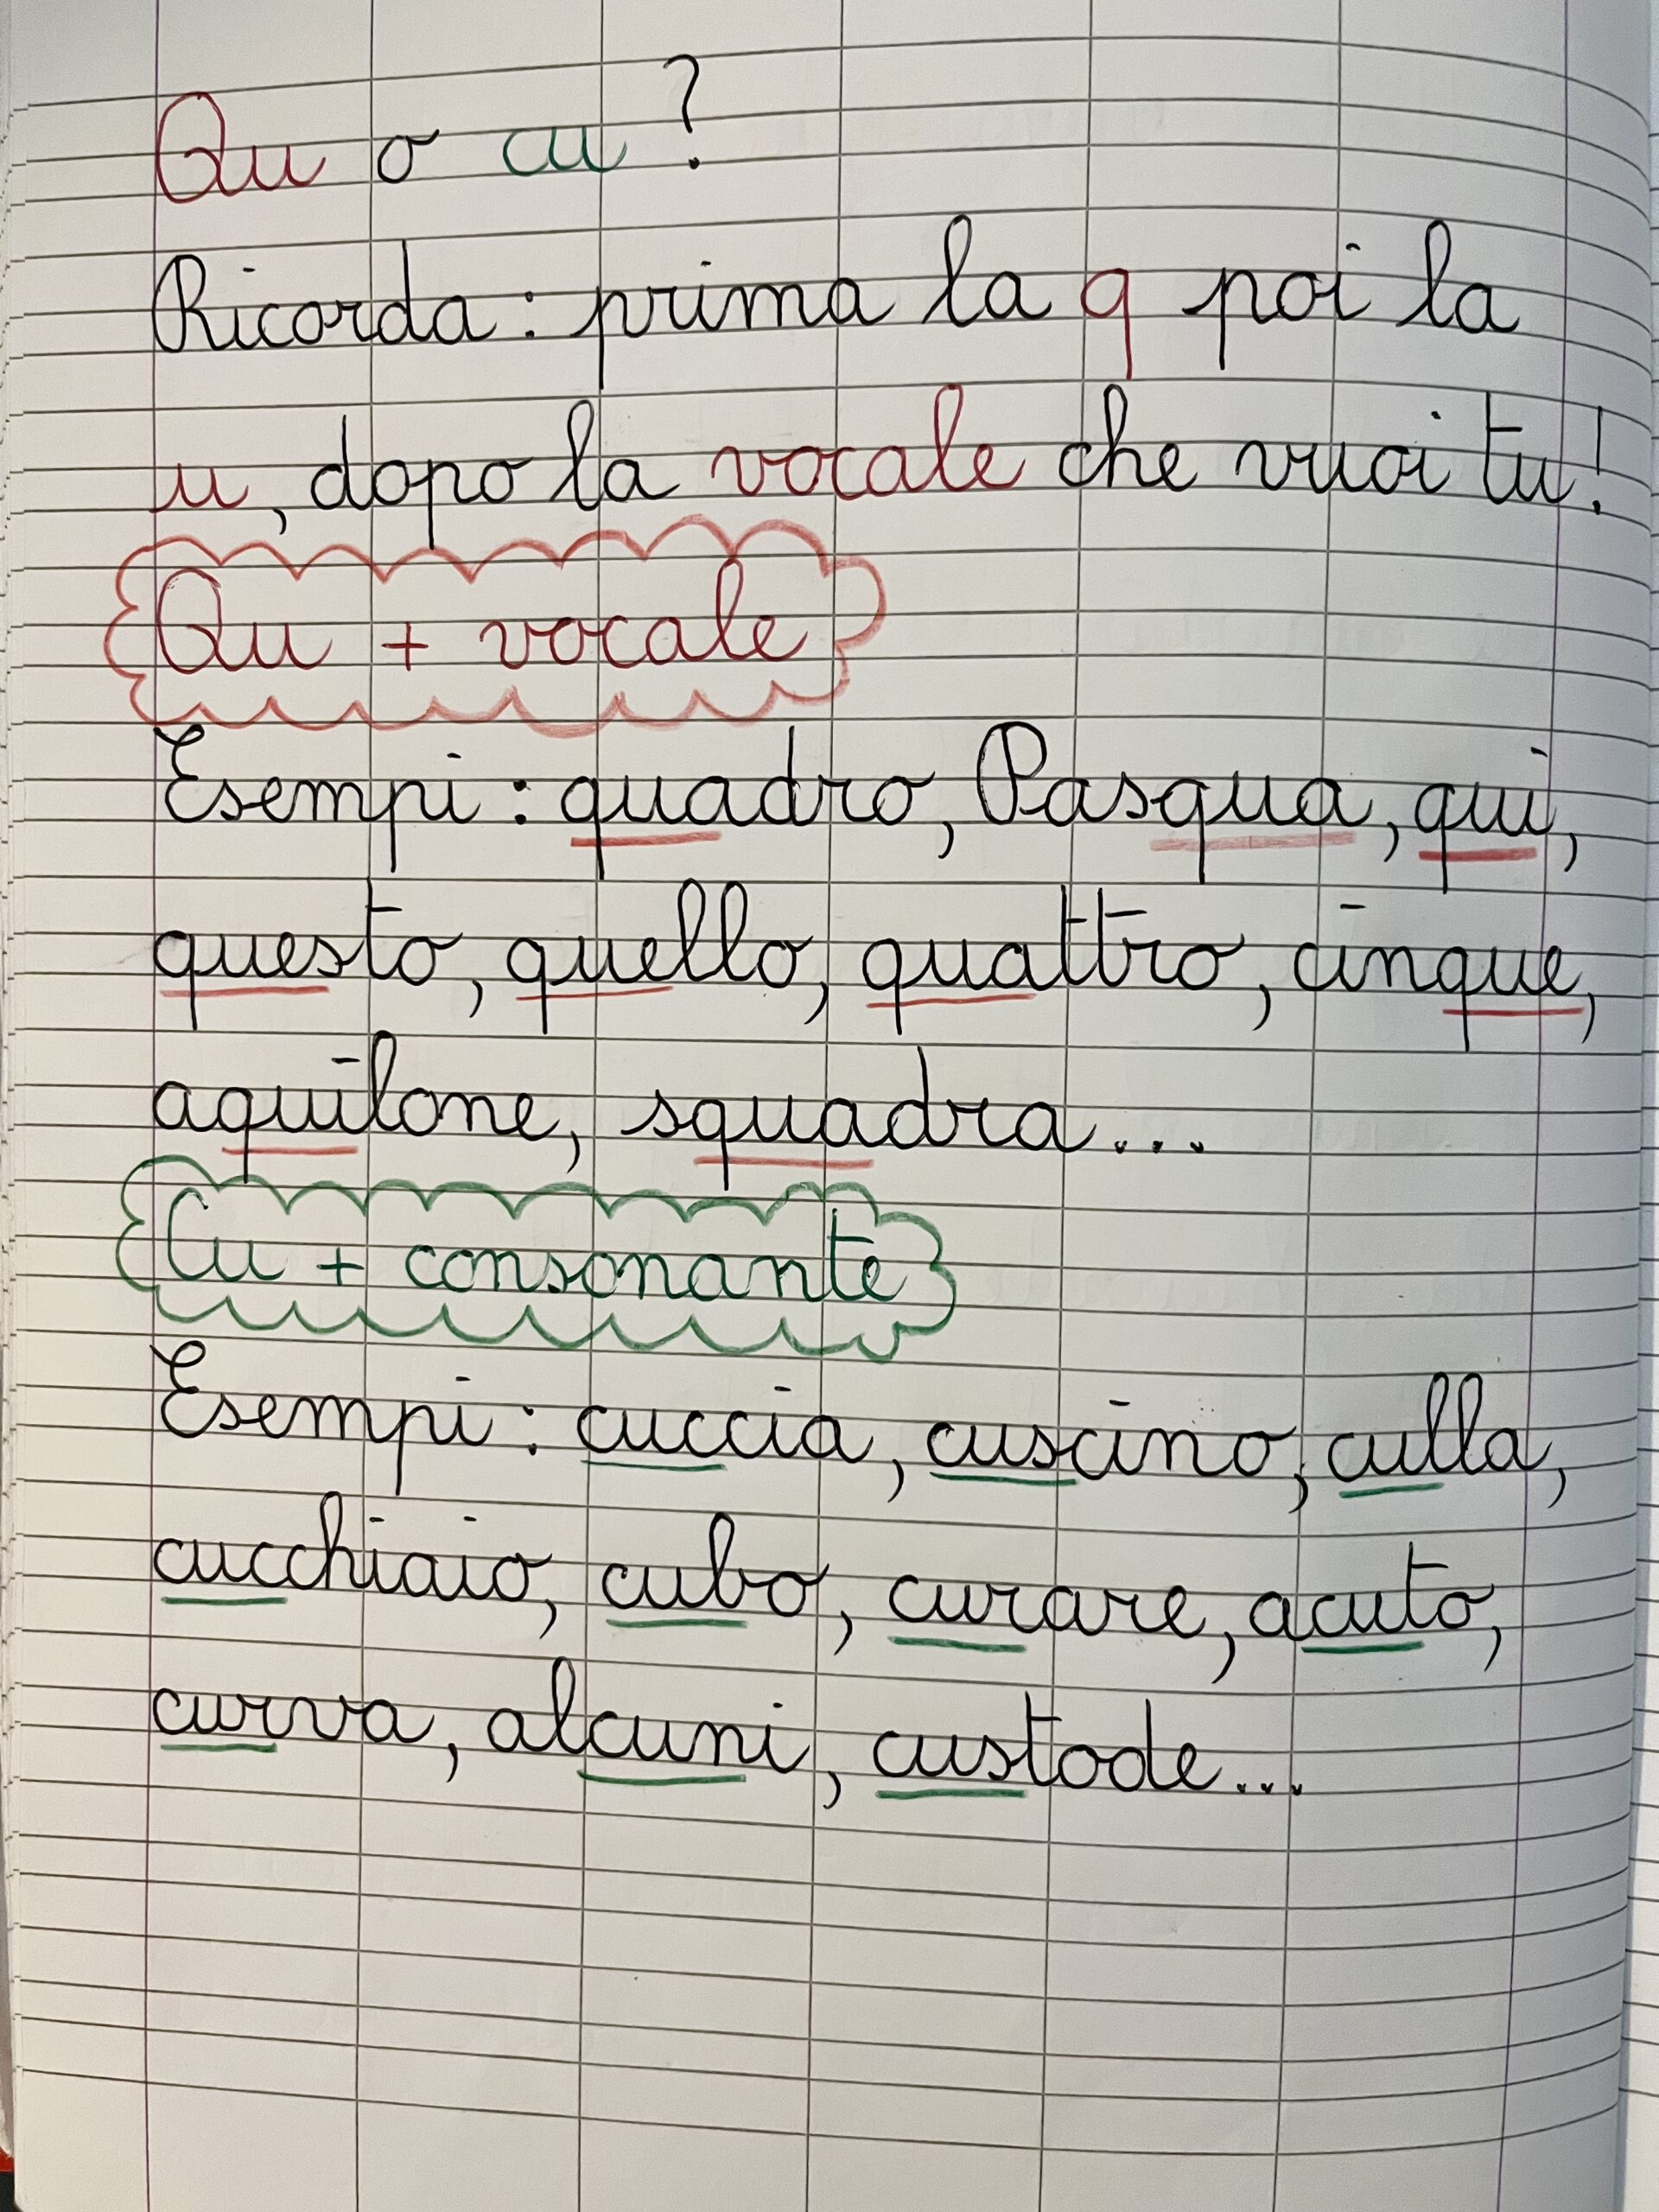 Qu o cu?
Ricorda: prima la q poi la
u, dopo la vocale che vuoi tu!
Qu + vocale
Esempi: quadro, Pasqua, qui,
questo, quello, quattro, cinque,
aquilone, squadra...
Cu + consonante
Esempi: cuccia, cuscino, culla,
cucchiaio, cubo, curare, acuto,
curva, alcuni, custode...